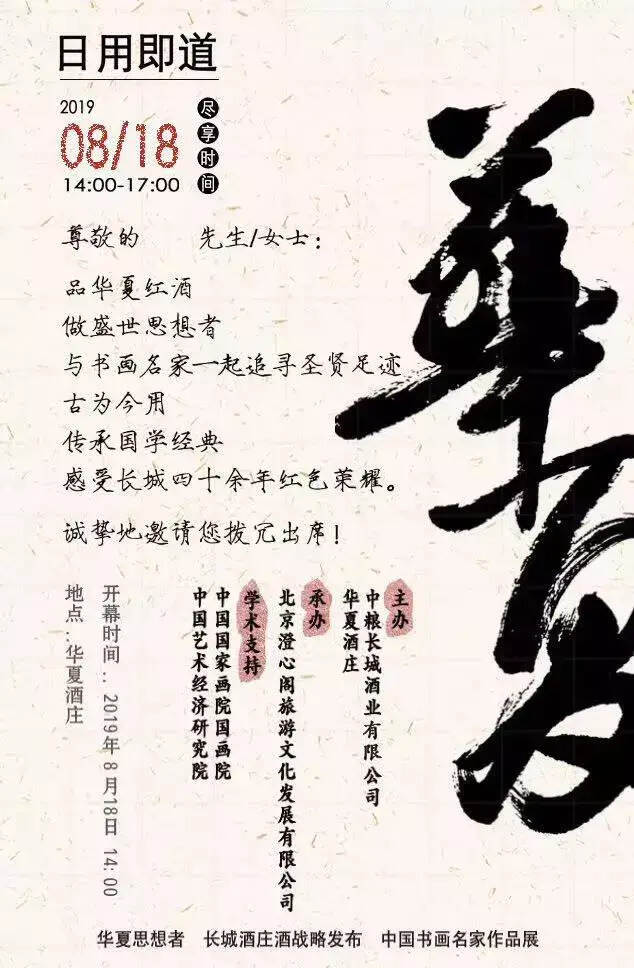 日用即道
2019
08/18
14:00-17:00
尽享时间
尊敬的 先生/女士：
品华夏红酒
做盛世思想者
与书画名家一起追寻圣贤足迹
古为今用
传承国学经典
感受长城四十余年红色荣耀。
诚挚地邀请您拨冗出席！
華夏
主办
中粮长城酒业有限公司
华夏酒庄
承办
北京澄心阁旅游文化发展有限公司
学术支持
中国国家画院国画院
中国艺术经济研究院
开幕时间：2019年8月18日 14:00
地点：华夏酒庄
华夏思想者 长城酒庄酒战略发布 中国书画名家作品展